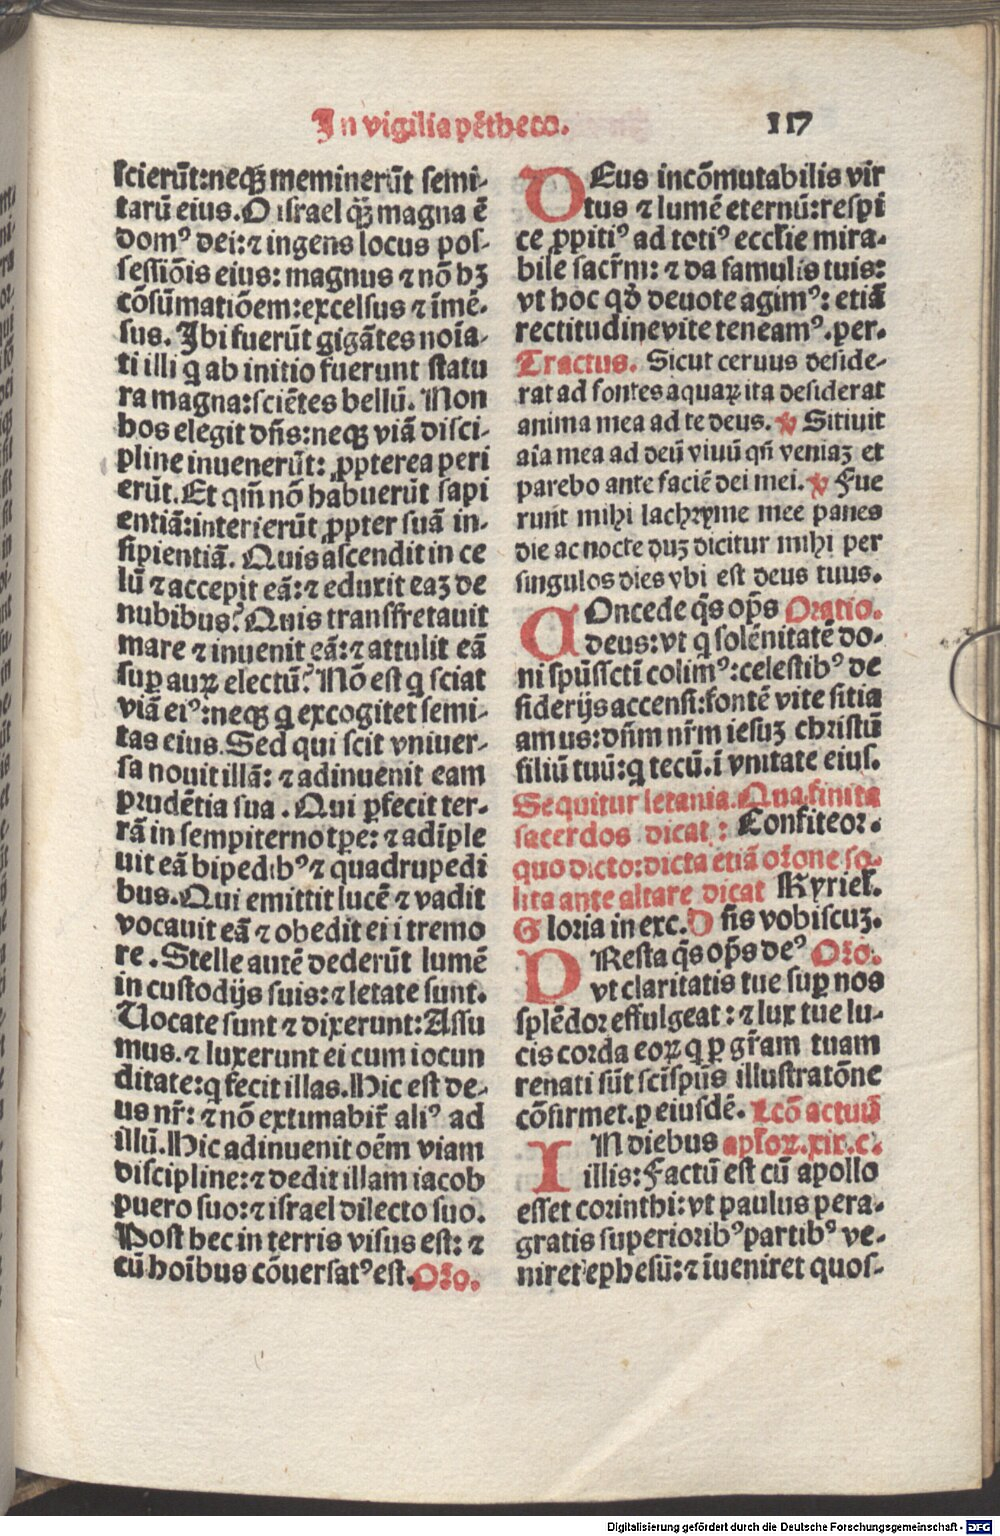 In vigilia pētheco. 117
scierūt:neqꝫ meminerūt semi-
tarū eius. O israel qꝫ magna ē
domꝰ dei:⁊ ingens locus pos-
sessiōis eius: magnus ⁊ nō hꝫ
cōsūmatiōem:excelsus ⁊ īmē-
sus. Ibi fuerūt gigātes noīa-
ti illi q ab initio fuerunt statu
ra magna:sciētes bellū. Non
hos elegit dn̄s:neqꝫ viā disci-
pline inuenerūt: ꝓpterea peri
erūt. Et qm̄ nō habuerūt sapi
entiā:interierūt ꝓpter suā in-
sipientiā. Quis ascendit in ce
lū ⁊ accepit eā:⁊ eduxit eaꝫ de
nubibus? Quis transfretauit
mare ⁊ inuenit eā:⁊ attulit eā
suꝑ auꝝ electū? Nō est q sciat
viā eiꝰ:neqꝫ q excogitet semi-
tas eius. Sed qui scit vniuer-
sa nouit illā: ⁊ adinuenit eam
prudētia sua . Qui ꝑfecit ter-
rā in sempiterno tꝑe: ⁊ adīple
uit eā bipedibꝰ ⁊ quadrupedi
bus. Qui emittit lucē ⁊ vadit
vocauit eā ⁊ obedit ei i tremo
re . Stelle autē dederūt lumē
in custodijs suis:⁊ letate sunt.
Uocate sunt ⁊ dixerunt: Assu
mus. ⁊ luxerunt ei cum iocun
ditate:q fecit illas. Hic est de-
us nr̄: ⁊ nō extimabir̄ aliꝰ ad
illū. Hic adinuenit oēm viam
discipline:⁊ dedit illam iacob
puero suo:⁊ israel dilecto suo.
Post hec in terris visus est: ⁊
cū hoībus cōuersatꝰ est. Oro.
DEus incōmutabilis vir
tus ⁊ lumē eternū:respi
ce ꝓpitiꝰ ad totiꝰ eccl̄ie mira-
bile sacr̄m: ⁊ da famulis tuis:
vt hoc qd̄ deuote agimꝰ: etiā
rectitudine vite teneamꝰ. per.
Tractus. Sicut ceruus deside-
rat ad fontes aquaꝝ ita desiderat
anima mea ad te deus. ℣ Sitiuit
aīa mea ad deū viuū qn̄ veniaꝫ et
parebo ante faciē dei mei. ℣ Fue
runt mihi lachryme mee panes
die ac nocte duꝫ dicitur mihi per
singulos dies vbi est deus tuus.
COncede qs̄ op̄s Oratio.
deus:vt q solēnitatē do-
ni spūssct̄i colimꝰ:celestibꝰ de
siderijs accensi:fontē vite sitia
amus:dn̄m nr̄m iesuꝫ christū
filiū tuū:q tecū.ī vnitate eius.
Sequitur letania. Qua finita
sacerdos dicat : Confiteor.
quo dicto:dicta etiā orōne so-
lita ante altare dicat Kyriel.
Gloria in exc. Dn̄s vobiscuꝫ.
PResta qs̄ op̄s deꝰ Oro.
vt claritatis tue suꝑ nos
splēdor effulgeat : ⁊ lux tue lu-
cis corda eoꝝ q ꝑ gr̄am tuam
renati sūt sct̄ispūs illustratōne
cōfirmet. ꝑ eiusdē. Lcō actuū
IN diebus apl̄oꝝ.xix.c.
illis: Factū est cū apollo
esset corinthi:vt paulus pera-
gratis superioribꝰ partibꝰ ve-
niret ephesū:⁊ īueniret quos-
Digitalisierung gefördert durch die Deutsche Forschungsgemeinschaft - DFG